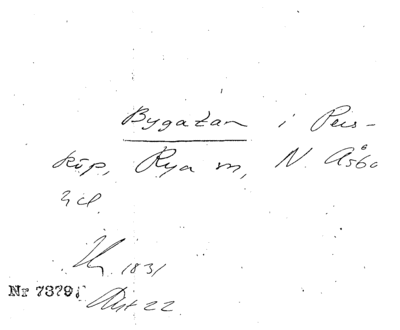 Bygatan i Pers-
köp, Rya sn, N. Åsbo
hd.
1831
Nr 7379. Akt 22